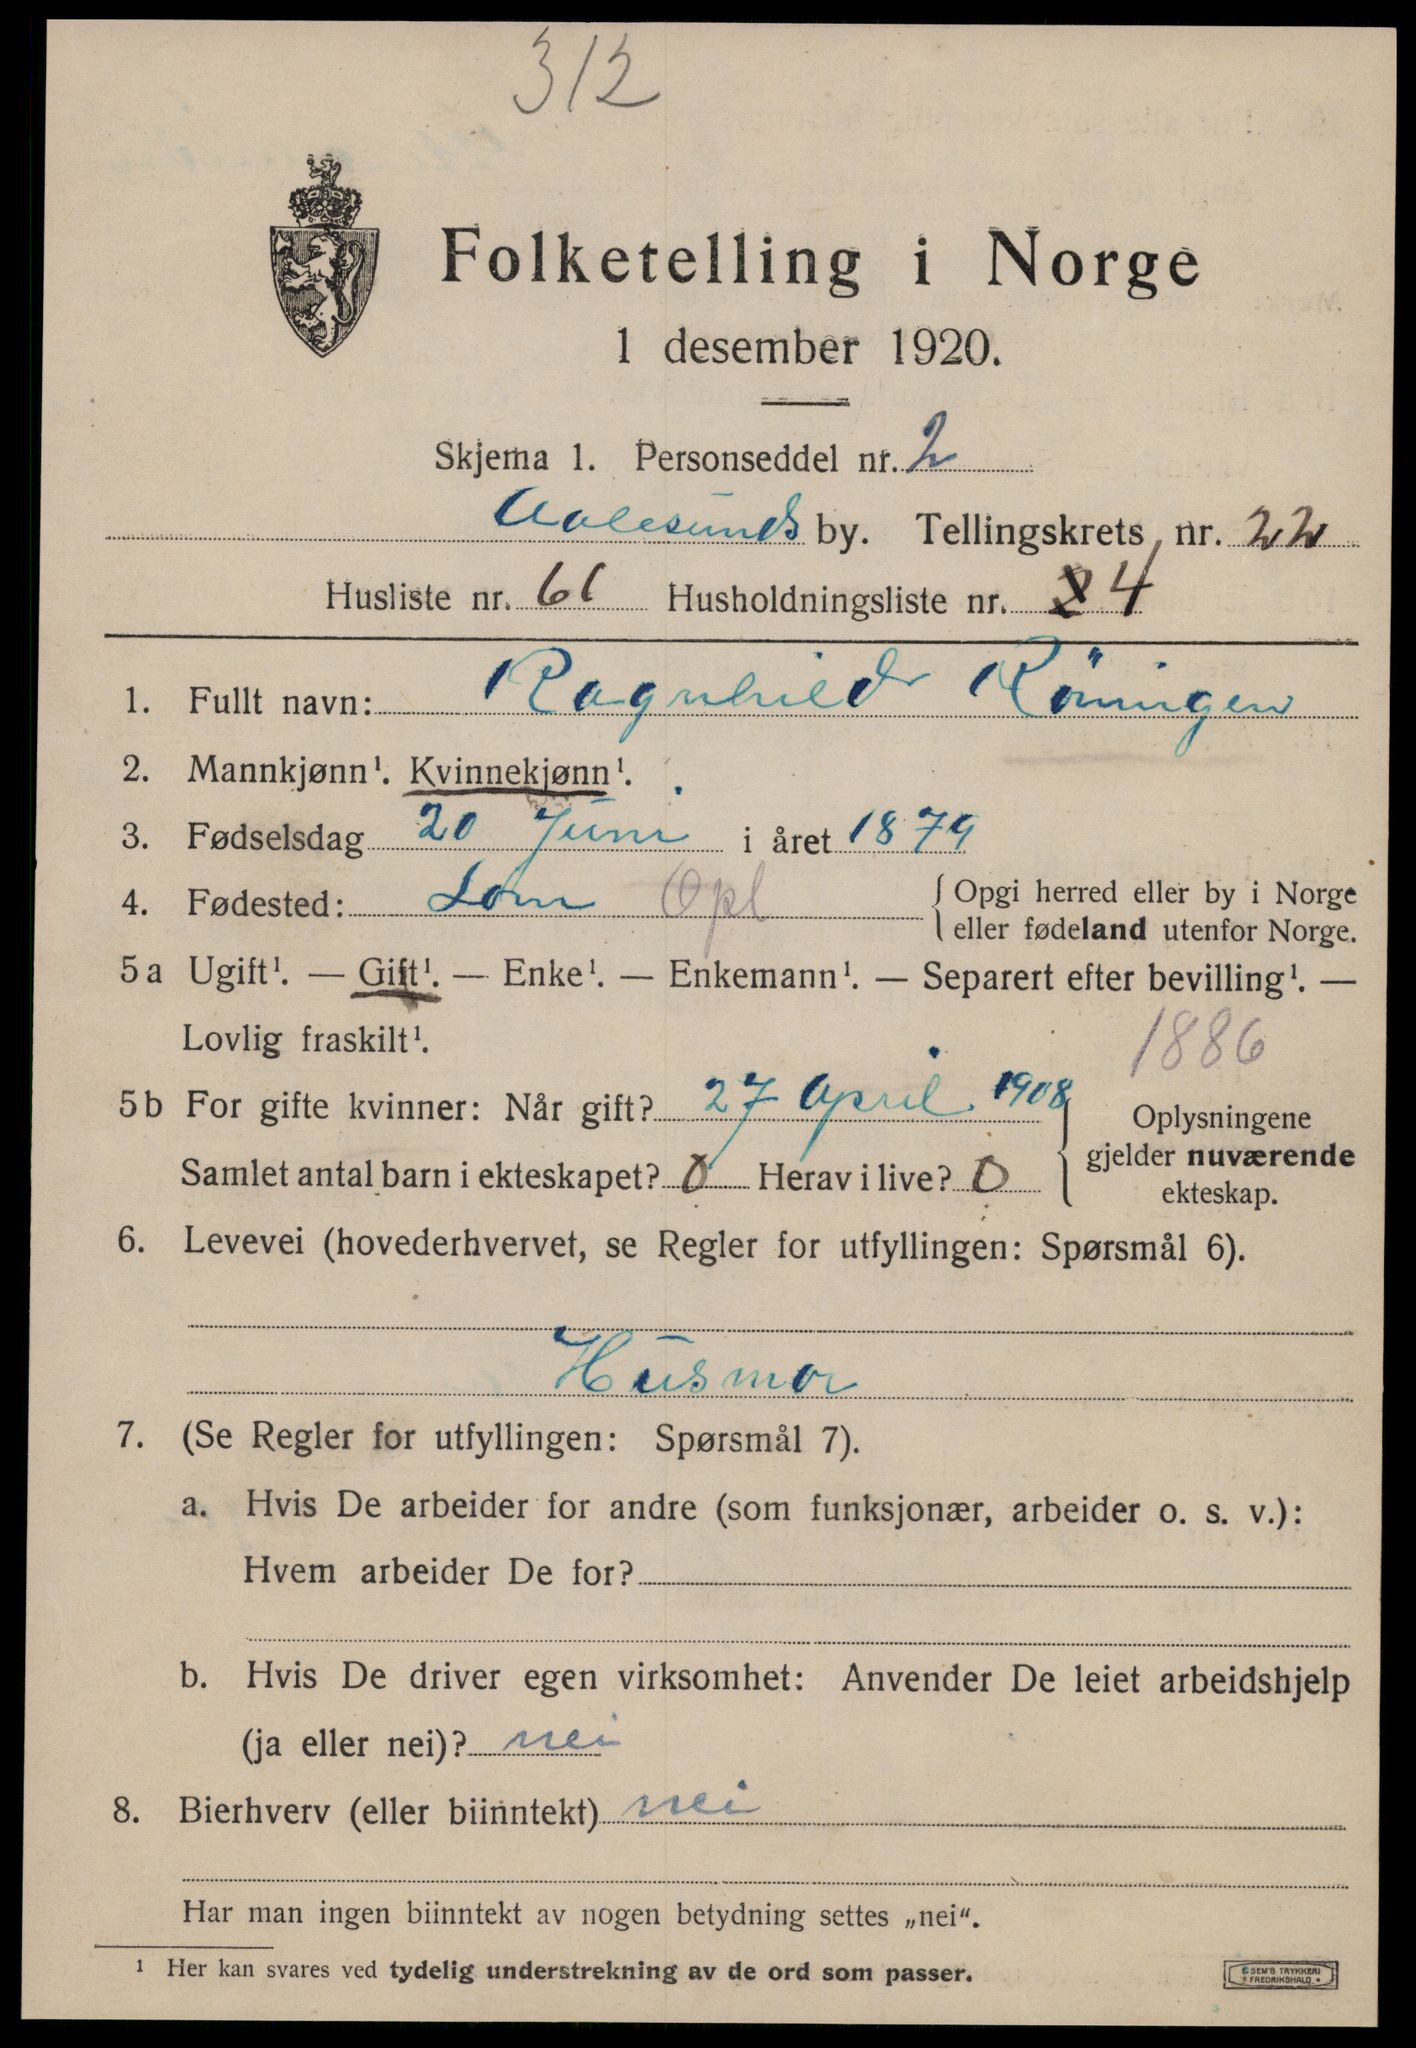 312
Folketelling i Norge
1 desember 1920.
Skjema 1. Personseddel nr. 2
Aalesunds by. Tellingskrets nr. 22
Husliste nr. 61 Husholdningsliste nr. 2 4
1. Fullt navn: Ragnhild Röningen
2. Mannkjønn¹. Kvinnekjønn¹.
3. Fødselsdag 20 Juni i året 1879
4. Fødested: Lom Opl { Opgi herred eller by i Norge
eller fødeland utenfor Norge.
5a Ugift¹. — Gift¹. — Enke¹. — Enkemann¹. — Separert efter bevilling¹. —
Lovlig fraskilt¹.
1886
5b For gifte kvinner: Når gift? 27 April 1908
Samlet antal barn i ekteskapet? 0 Herav i live? 0
Oplysningene
gjelder nuværende
ekteskap.
6. Levevei (hovederhvervet, se Regler for utfyllingen: Spørsmål 6).
Husmor
7. (Se Regler for utfyllingen: Spørsmål 7).
a. Hvis De arbeider for andre (som funksjonær, arbeider o. s. v.):
Hvem arbeider De for?
b. Hvis De driver egen virksomhet: Anvender De leiet arbeidshjelp
(ja eller nei)? nei
8. Bierhverv (eller biinntekt) nei
Har man ingen biinntekt av nogen betydning settes „nei“.
¹ Her kan svares ved tydelig understrekning av de ord som passer.
SEM'S TRYKKERI
FREDRIKSHALD